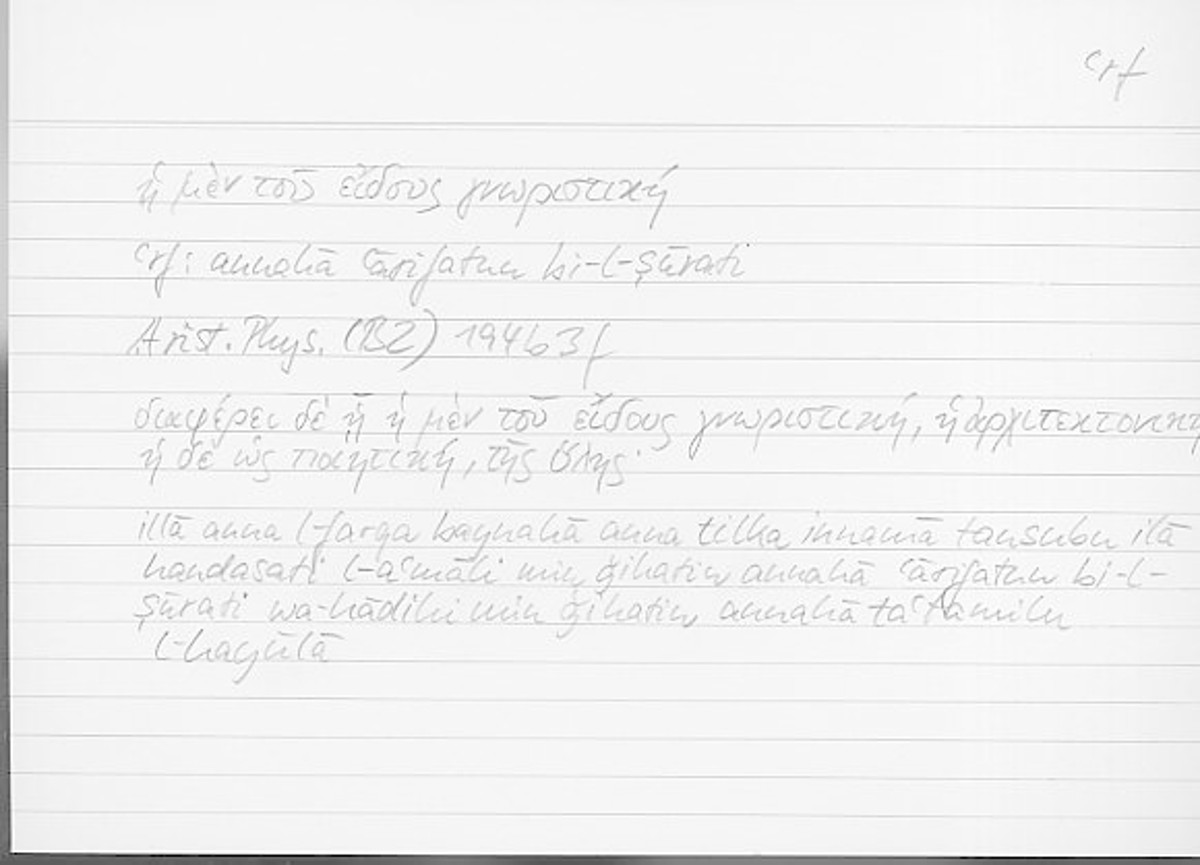 ʿrf
ἡ μὲν τοῦ εἴδους γνωριστική
ʿrf: annahā ʿārifatun bi-l-ṣūrati
Arist. Phys. (B2) 194b3f
διαφέρει δὲ ᾗ ἡ μὲν τοῦ εἴδους γνωριστική, ἡ ἀρχιτεκτονική
ἡ δὲ ὡς ποιητική, τῆς ὕλης·
illā anna l-farqa baynahā anna tilka innamā tansubu ilā
handasati l-aʿmāli min ǧihatin annahā ʿārifatun bi-l-
ṣūrati wa-hāḏihi min ǧihatin annahā taʿtamilu
l-hayūlā